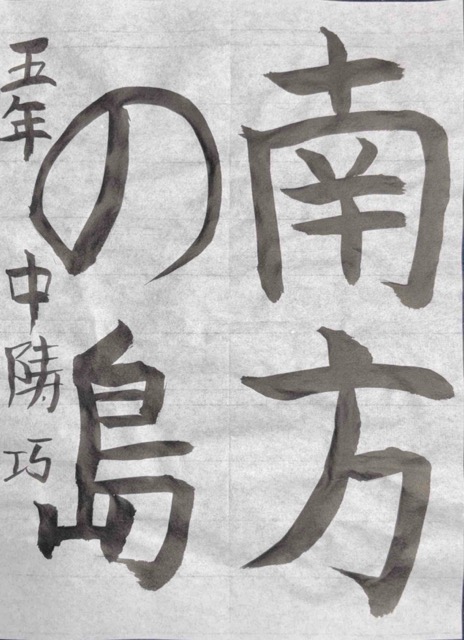 南方
の島
五年 中 巧